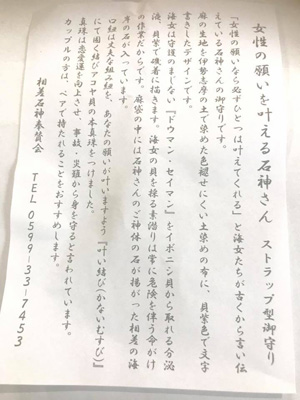 女性の願いを叶える石神さん　ストラップ型御守り
「女性の願いなら必ずひとつは叶えてくれる」と海女たちが古くから言い伝
えている石神さんの御守りです。
麻の生地を伊勢志摩の土で染めた色褪せにくい土染めの布に、貝紫色で文字
書きしたデザインです。
海女は守護のまじない『ドウマン・セイマン』をイボニシ貝から取れる分泌
液、貝紫で磯着に描きます。海女の貝を採る素潜りは常に危険を伴う命がけ
の作業だからです。麻袋の中には石神さんのご神体の石が揚がった相差の海
岸の石が入っています。
口紐は丈夫な組み紐を、あなたの願いが叶いますよう『叶い結び(かないむすび)』
にて固く結びアコヤ貝の本真珠をつけました。
真珠は恋愛運を向上させ、事故、災難から身を守ると言われています。
カップルの方は、ペアで持たれることをおすすめします。
相差石神奉賛会　TEL 0599-33-7453